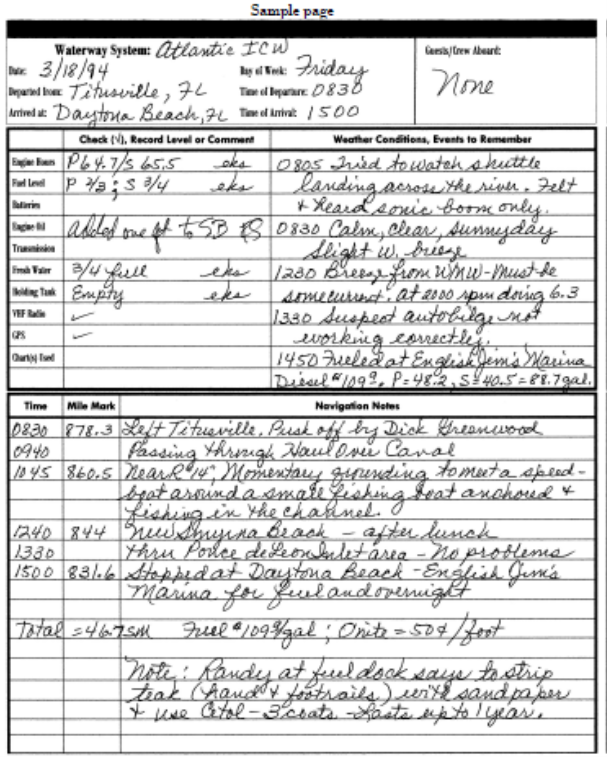 Sample page
Waterway System: Atlantic ICW
Guests/Crew Aboard:
Date: 3/18/94 Day of Week: Friday
None
Departed from: Titusville, FL Time of Departure: 0830
Arrived at: Daytona Beach, FL Time of Arrival: 1500
Check (√), Record Level or Comment Weather Conditions, Events to Remember
Engine Hours P64.7/S 65.5 eks 0805 Tried to watch shuttle
Fuel Level P 2/3; S 3/4 eks landing across the river. Felt
Batteries & heard sonic boom only.
Engine Oil added one qt to SB 0830 Calm, clear, sunny day
Transmission Slight W. breeze
Fresh Water 3/4 full eks 1230 Breeze from WNW-Must be
Holding Tank Empty eks some current. at 2000 rpm doing 6.3
VHF Radio ✓ 1330 Suspect autobilge not
GPS ✓ working correctly.
Chart(s) Used 1450 Fueled at English Jim's Marina
Diesel $109⁹. P=48.2, S=40.5=88.7gal.
Time Mile Mark Navigation Notes
0830 878.3 Left Titusville. Push off by Dick Greenwood
0940 Passing through Haul Over Canal
1045 860.5 Near R"14", Momentary grounding to meet a speed-
boat around a small fishing boat anchored &
fishing in the channel.
1240 844 New Smyrna Beach - after lunch
1330 thru Ponce de Leon Inlet area - No problems
1500 831.6 Stopped at Daytona Beach - English Jim's
Marina for fuel and overnight
Total = 46.7sm Fuel $109⁹/gal; Onite = 50¢/foot
Note: Randy at fuel dock says to strip
teak (hand & footrails) with sandpaper
& use Cetol - 3 coats - Lasts up to 1 year.